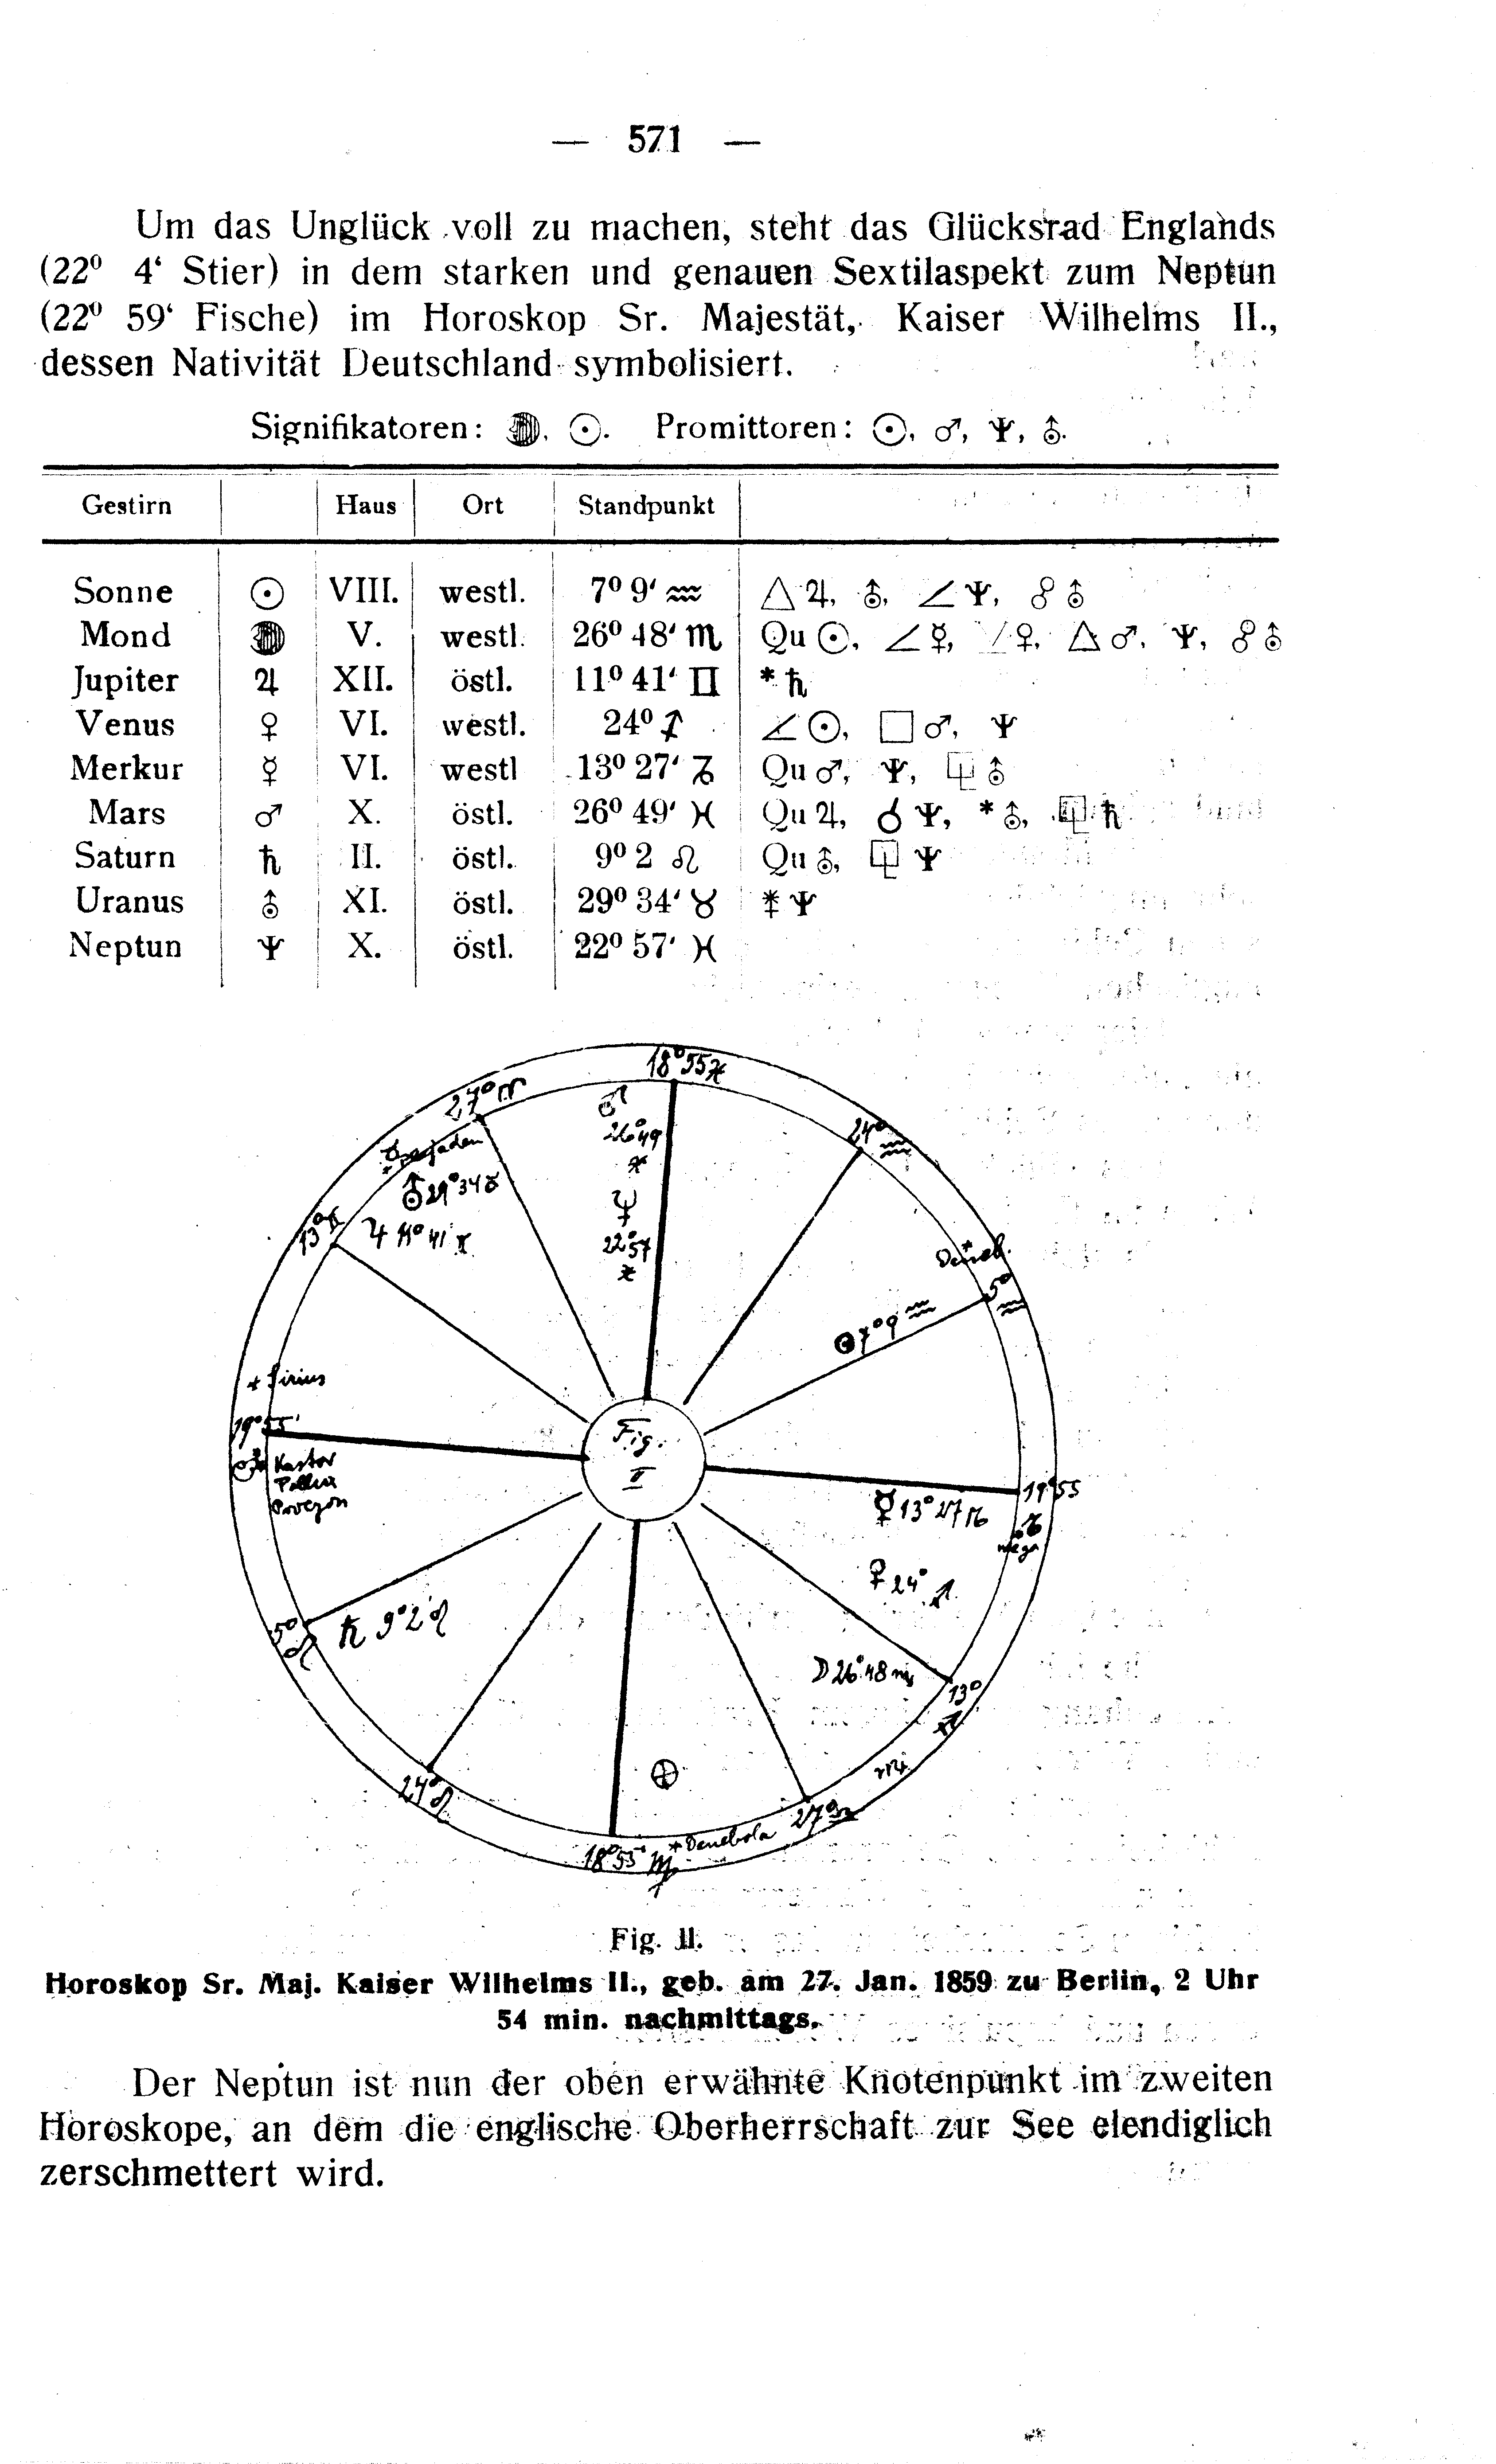 — 571 —
Um das Unglück voll zu machen, steht das Glücksrad Englands
(22⁰ 4‘ Stier) in dem starken und genauen Sextilaspekt zum Neptun
(22⁰ 59‘ Fische) im Horoskop Sr. Majestät, Kaiser Wilhelms II.,
dessen Nativität Deutschland symbolisiert.
Signifikatoren: ☽, ☉. Promittoren: ☉, ♂, ♆, ⛢.
Gestirn Haus Ort Standpunkt
Sonne ☉ VIII. westl. 7⁰ 9‘ ♒ △ ♃, ⛢, ∠ ♆, ☍ ⛢
Mond ☽ V. westl. 26⁰ 48‘ ♏ Qu ☉, ∠ ☿, ⚺ ♀, △ ♂, ♆, ☍ ⛢
Jupiter ♃ XII. östl. 11⁰ 41‘ ♊ * ♄
Venus ♀ VI. westl. 24⁰ ♐ ∠ ☉, □ ♂, ♆
Merkur ☿ VI. westl 13⁰ 27‘ ♑ Qu ♂, ♆, ⚼ ⛢
Mars ♂ X. östl. 26⁰ 49‘ ♓ Qu ♃, ☌ ♆, * ⛢, ⚼ ♄
Saturn ♄ II. östl. 9⁰ 2 ♌ Qu ⛢, ⚼ ♆
Uranus ⛢ XI. östl. 29⁰ 34‘ ♉ ⚹ ♆
Neptun ♆ X. östl. 22⁰ 57‘ ♓
18⁰ 55 ♓
27⁰ ♈
♂
26⁰ 49
♓
24⁰
♒
⛢ 29⁰ 34 ♉
♆
13⁰ ♊
♃ 11⁰ 41' ♊
22⁰ 57
♓
Deneb.
5⁰
♒
☉ 7⁰ 9 ♒
* Sirius
19⁰ 55'
Fig.
II
Kastor
Pollux
Procyon
19⁰ 55
☿ 13⁰ 27 ♑
♑
Wega
♀ 24⁰ ♐
5⁰
♌
♄ 9⁰ 2' ♌
☽ 26⁰ 48 ♏
13⁰
♐
⊕
♏
24⁰ ♌
27⁰ ♎
* Denebola
18⁰ 55' ♍
Fig. II.
Horoskop Sr. Maj. Kaiser Wilhelms II., geb. am 27. Jan. 1859 zu Berlin, 2 Uhr
54 min. nachmittags.
Der Neptun ist nun der oben erwähnte Knotenpunkt im zweiten
Horoskope, an dem die englische Oberherrschaft zur See elendiglich
zerschmettert wird.